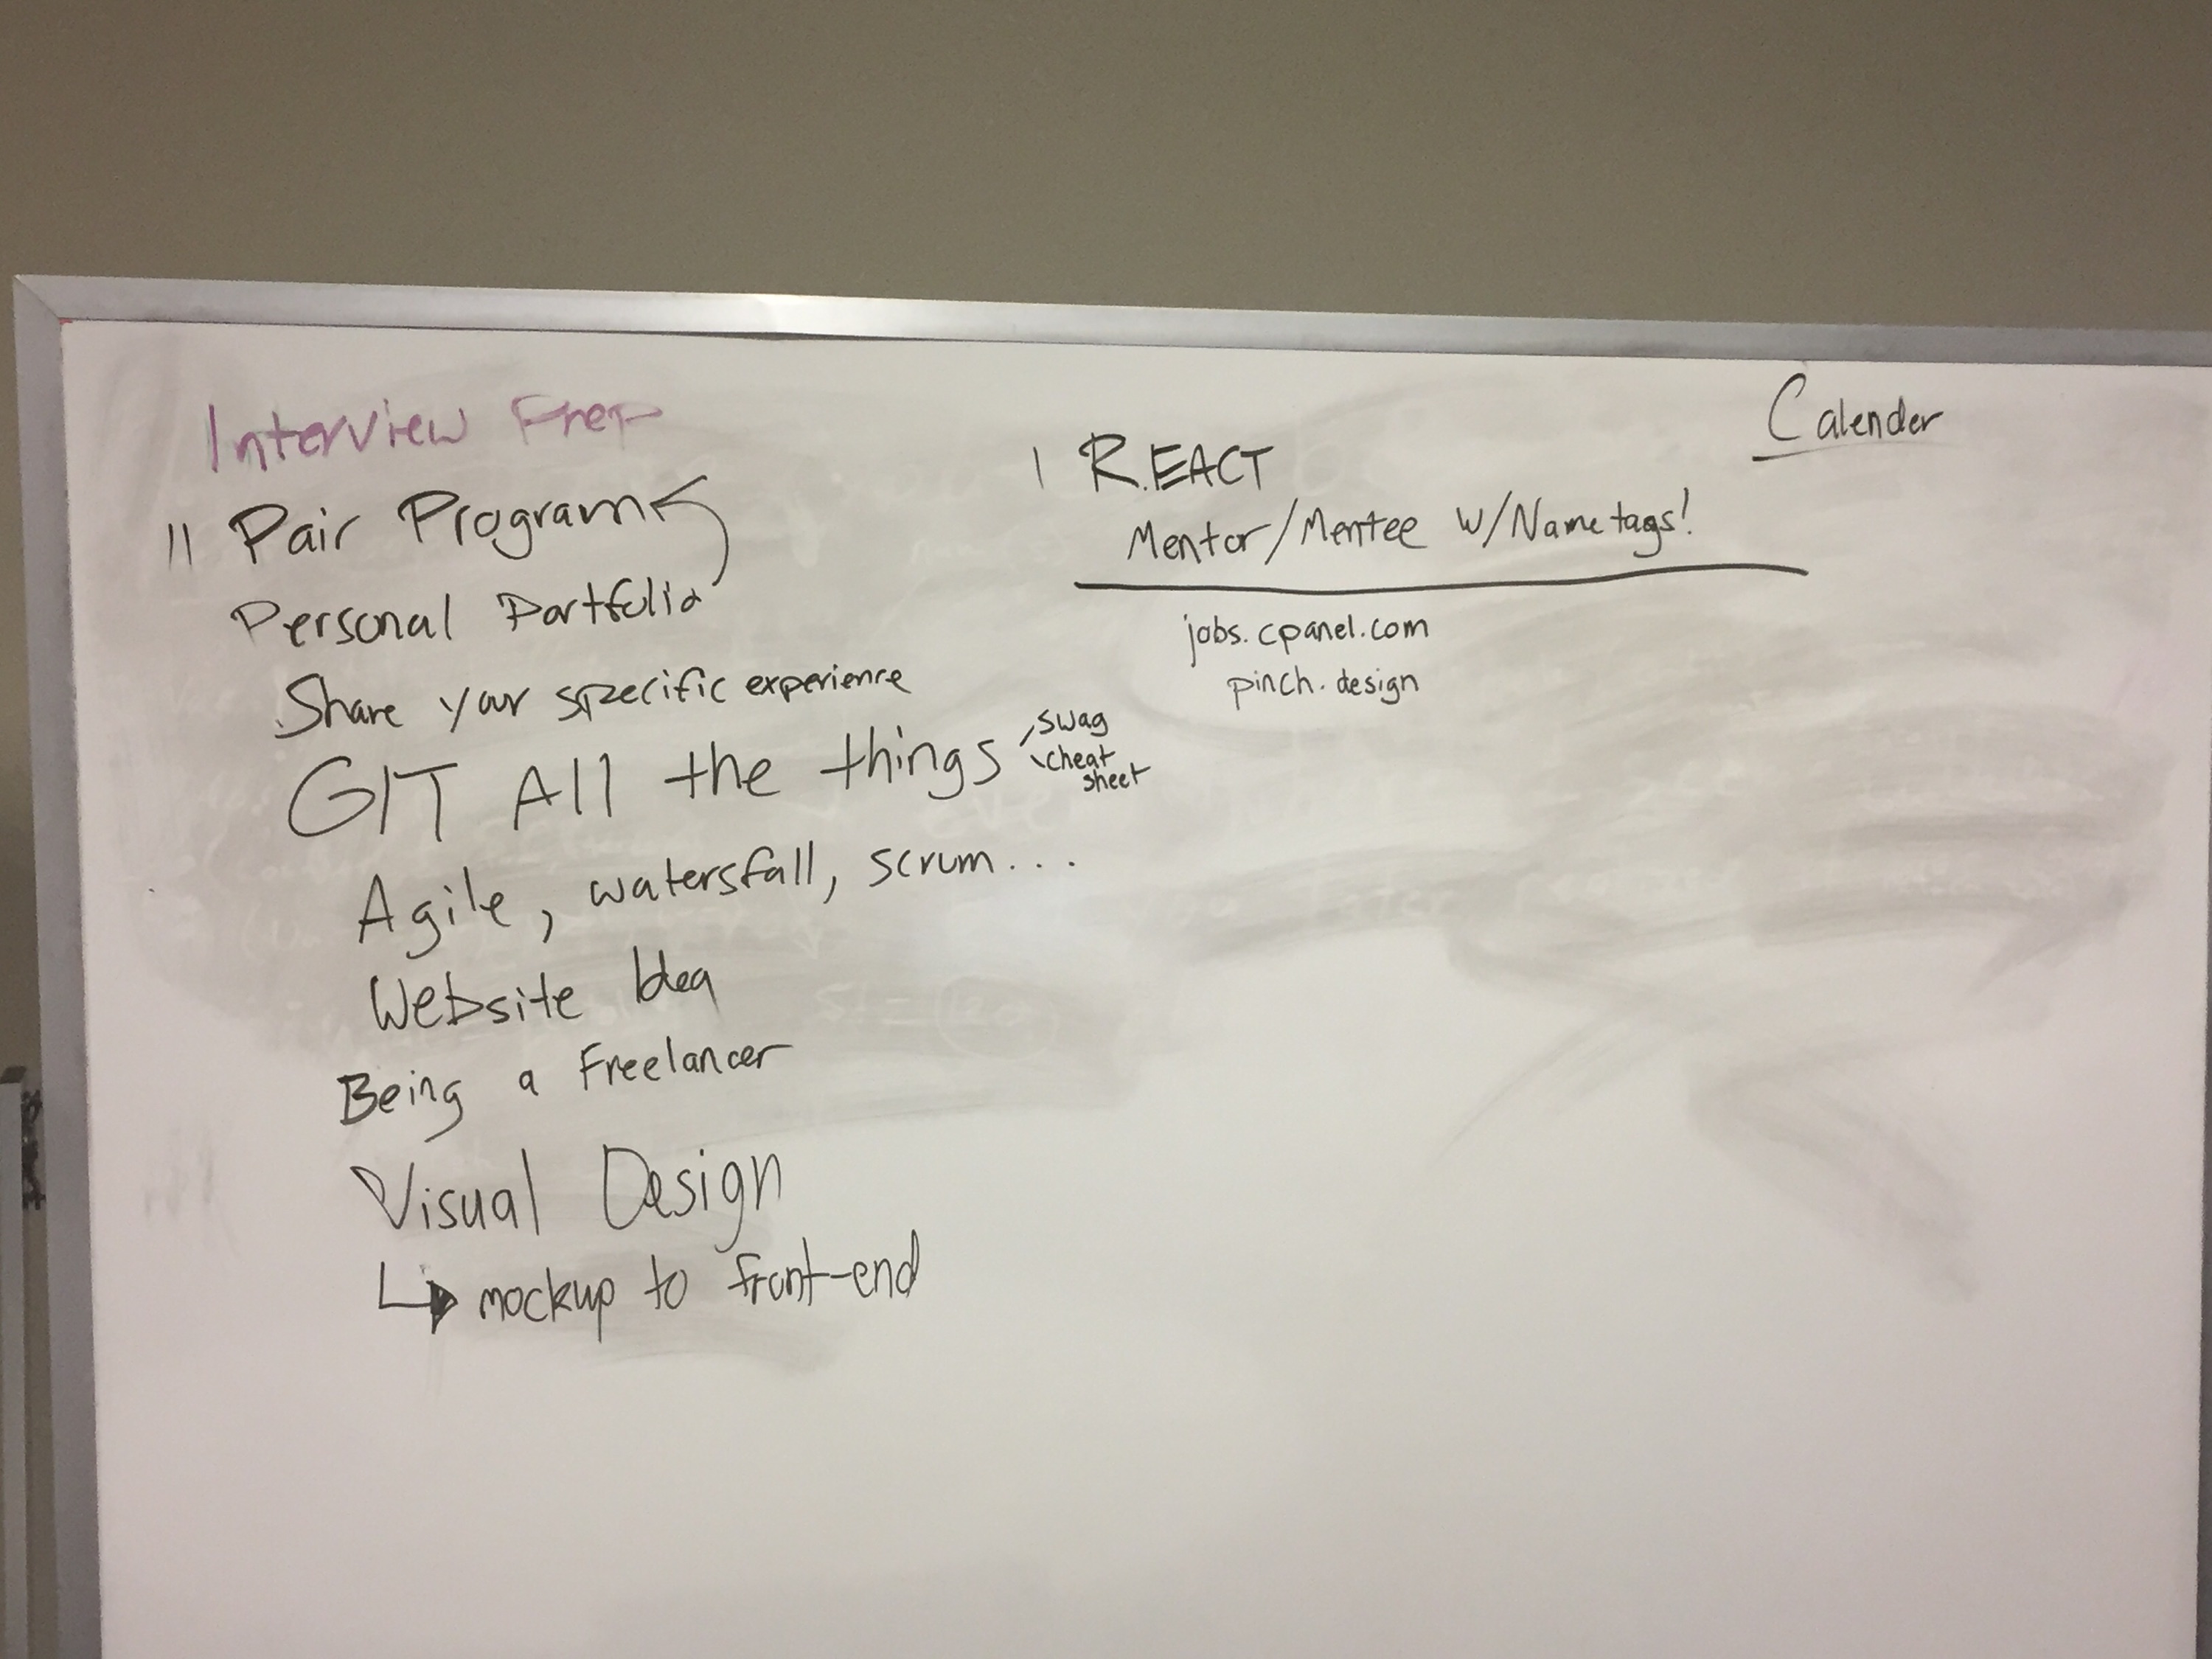 Interview Prep
|| Pair Program
Personal Portfolio
Share your specific experience
GIT All the things
swag
cheat
sheet
Agile, watersfall, scrum...
Website Idea
Being a Freelancer
Visual Design
mockup to front-end
| REACT
Mentor/Mentee w/Name tags!
jobs.cpanel.com
pinch.design
Calender